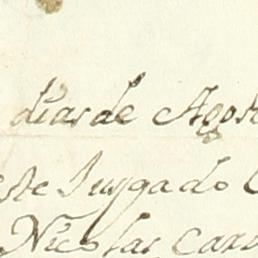 dias de Agost
este Juzgado
Nicolas Card